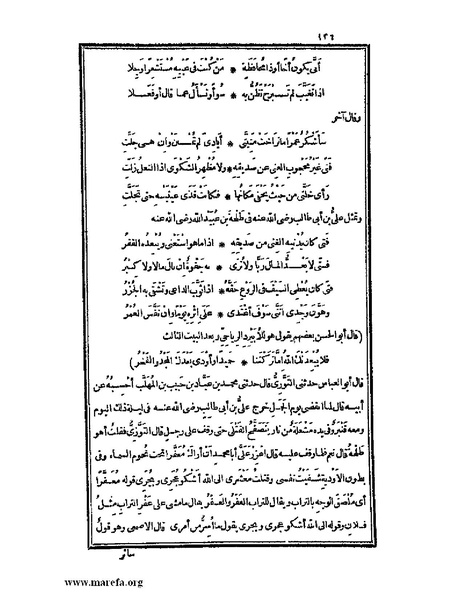 ١٢٦
أنى يكون أخا أوذا محافظة * من كنت في غيبه مستشعرا وجلا
اذا تغيب لم تبرح تظن به * سوأ وتسأل عما قال أو فعلا
وقال آخر
سأشكر عمرا ما تراخت منيتي * أيادي لم تمنن وان هي جلت
فتى غير محجوب الغنى عن صديقه * ولا مظهر الشكوى اذا النعل زلت
رأى خلتي من حيث يخفى مكانها * فكانت قذى عينيه حتى تجلت
وتمثل علي بن أبي طالب رضى الله عنه في طلحة بن عبيد الله رضى الله عنه
فتى كان يدنيه الغنى من صديقه * اذا ما هو استغنى ويبعده الفقر
فتى لا يعد المال ربا ولا ترى * به جفوة ان نال مالا ولا كبر
فتى كان يعطى السيف في الروع حقه * اذا ثوب الداعى وتشقى به الجزر
وهون وجدى أننى سوف أغتدى * على اثره يوما وان نفس العمر
(قال أبو الحسن بعضهم يقول هو للأبيرد الرياحى وبعد البيت الثالث
فلا يبعدنك الله اما تركتنا * حميدا وأودى بعدك المجد والفخر)
قال أبو العباس حدثنى التوزى قال حدثنى محمد بن عباد بن حبيب بن المهلب أحسبه عن
أبيه قال لما انقضى يوم الجمل خرج على بن أبى طالب رضى الله عنه في ليلة ذلك اليوم
ومعه قنبر وفي يده مشعلة من نار يتصفح القتلى حتى وقف على رجل قال التوزى فقلت أهو
طلحة قال نعم فلما وقف عليه قال أعزز على أبا محمد أن أراك معفرا تحت نجوم السماء وفى
بطون الاودية شفيت نفسى وقتلت معشرى الى الله أشكو عجرى وبجرى قوله معفرا
أى ملصق الوجه بالتراب ويقال للتراب العفر والعفر يقال ما مشى على عفر التراب مثل
فلان وقوله الى الله أشكو عجرى وبجرى يقول ما أسر من أمرى قال الاصمعى وهو قول
سائر
www.marefa.org